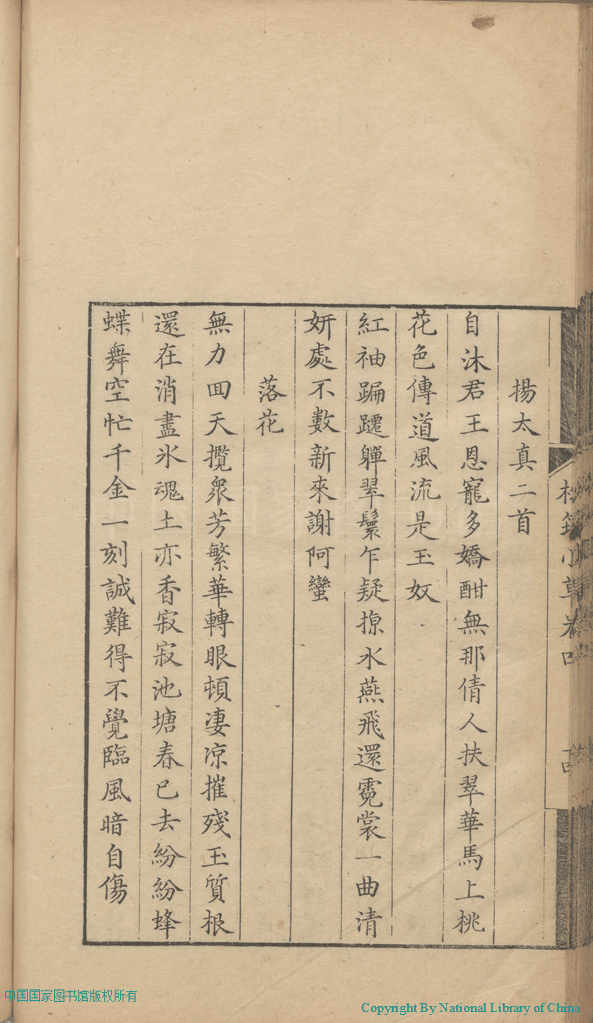 楊太真二首
自沐君王恩寵多嬌酣無那倩人扶翠華馬上桃
花色傳道風流是玉奴
紅袖蹁躚嚲翠鬟乍疑掠水燕飛還霓裳一曲清
妍處不數新來謝阿蠻
落花
無力回天攬衆芳繁華轉眼頓淒凉摧殘玉質根
還在消盡氷魂土亦香寂寂池塘春已去紛紛蜂
蝶舞空忙千金一刻誠難得不覺臨風暗自傷
小草卷四
中国国家图书馆版权所有
Copyright By National Library of China